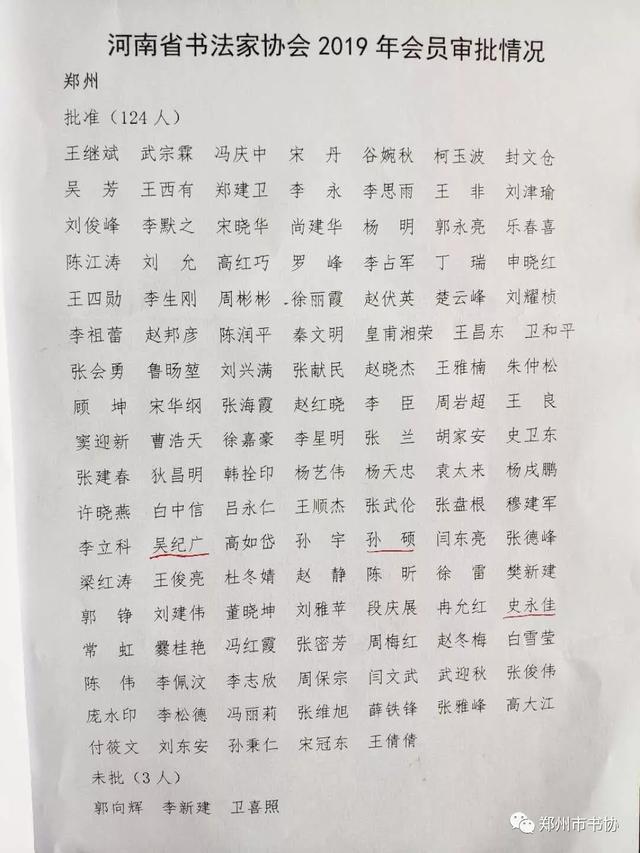 河南省书法家协会 2019 年会员审批情况
郑州
批准（124 人）
王继斌 武宗霖 冯庆中 宋 丹 谷婉秋 柯玉波 封文仓
吴 芳 王西有 郑建卫 李 永 李思雨 王 非 刘津瑜
刘俊峰 李默之 宋晓华 尚建华 杨 明 郭永亮 乐春喜
陈江涛 刘 允 高红巧 罗 峰 李占军 丁 瑞 申晓红
王四勋 李生刚 周彬彬 徐丽霞 赵伏英 楚云峰 刘耀桢
李祖蕾 赵邦彦 陈润平 秦文明 皇甫湘荣 王昌东 卫和平
张会勇 鲁旸堃 刘兴满 张献民 赵晓杰 王雅楠 朱仲松
顾 坤 宋华纲 张海霞 赵红晓 李 臣 周岩超 王 良
窦迎新 曹浩天 徐嘉豪 李星明 张 兰 胡家安 史卫东
张建春 狄昌明 韩拴印 杨艺伟 杨天忠 袁太来 杨戌鹏
许晓燕 白中信 吕永仁 王顺杰 张武伦 张盘根 穆建军
李立科 吴纪广 高如岱 孙 宇 孙 硕 闫东亮 张德峰
梁红涛 王俊亮 杜冬婧 赵 静 陈 昕 徐 雷 樊新建
郭 铮 刘建伟 董晓坤 刘雅苹 段庆展 冉允红 史永佳
常 虹 爨桂艳 冯红霞 张密芳 周梅红 赵冬梅 白雪莹
陈 伟 李佩汶 李志欣 周保宗 闫文武 武迎秋 张俊伟
庞水印 李松德 冯丽莉 张维旭 薛铁锋 张雅峰 高大江
付筱文 刘东安 孙秉仁 宋冠东 王倩倩
未批（3 人）
郭向辉 李新建 卫喜照
郑州市书协